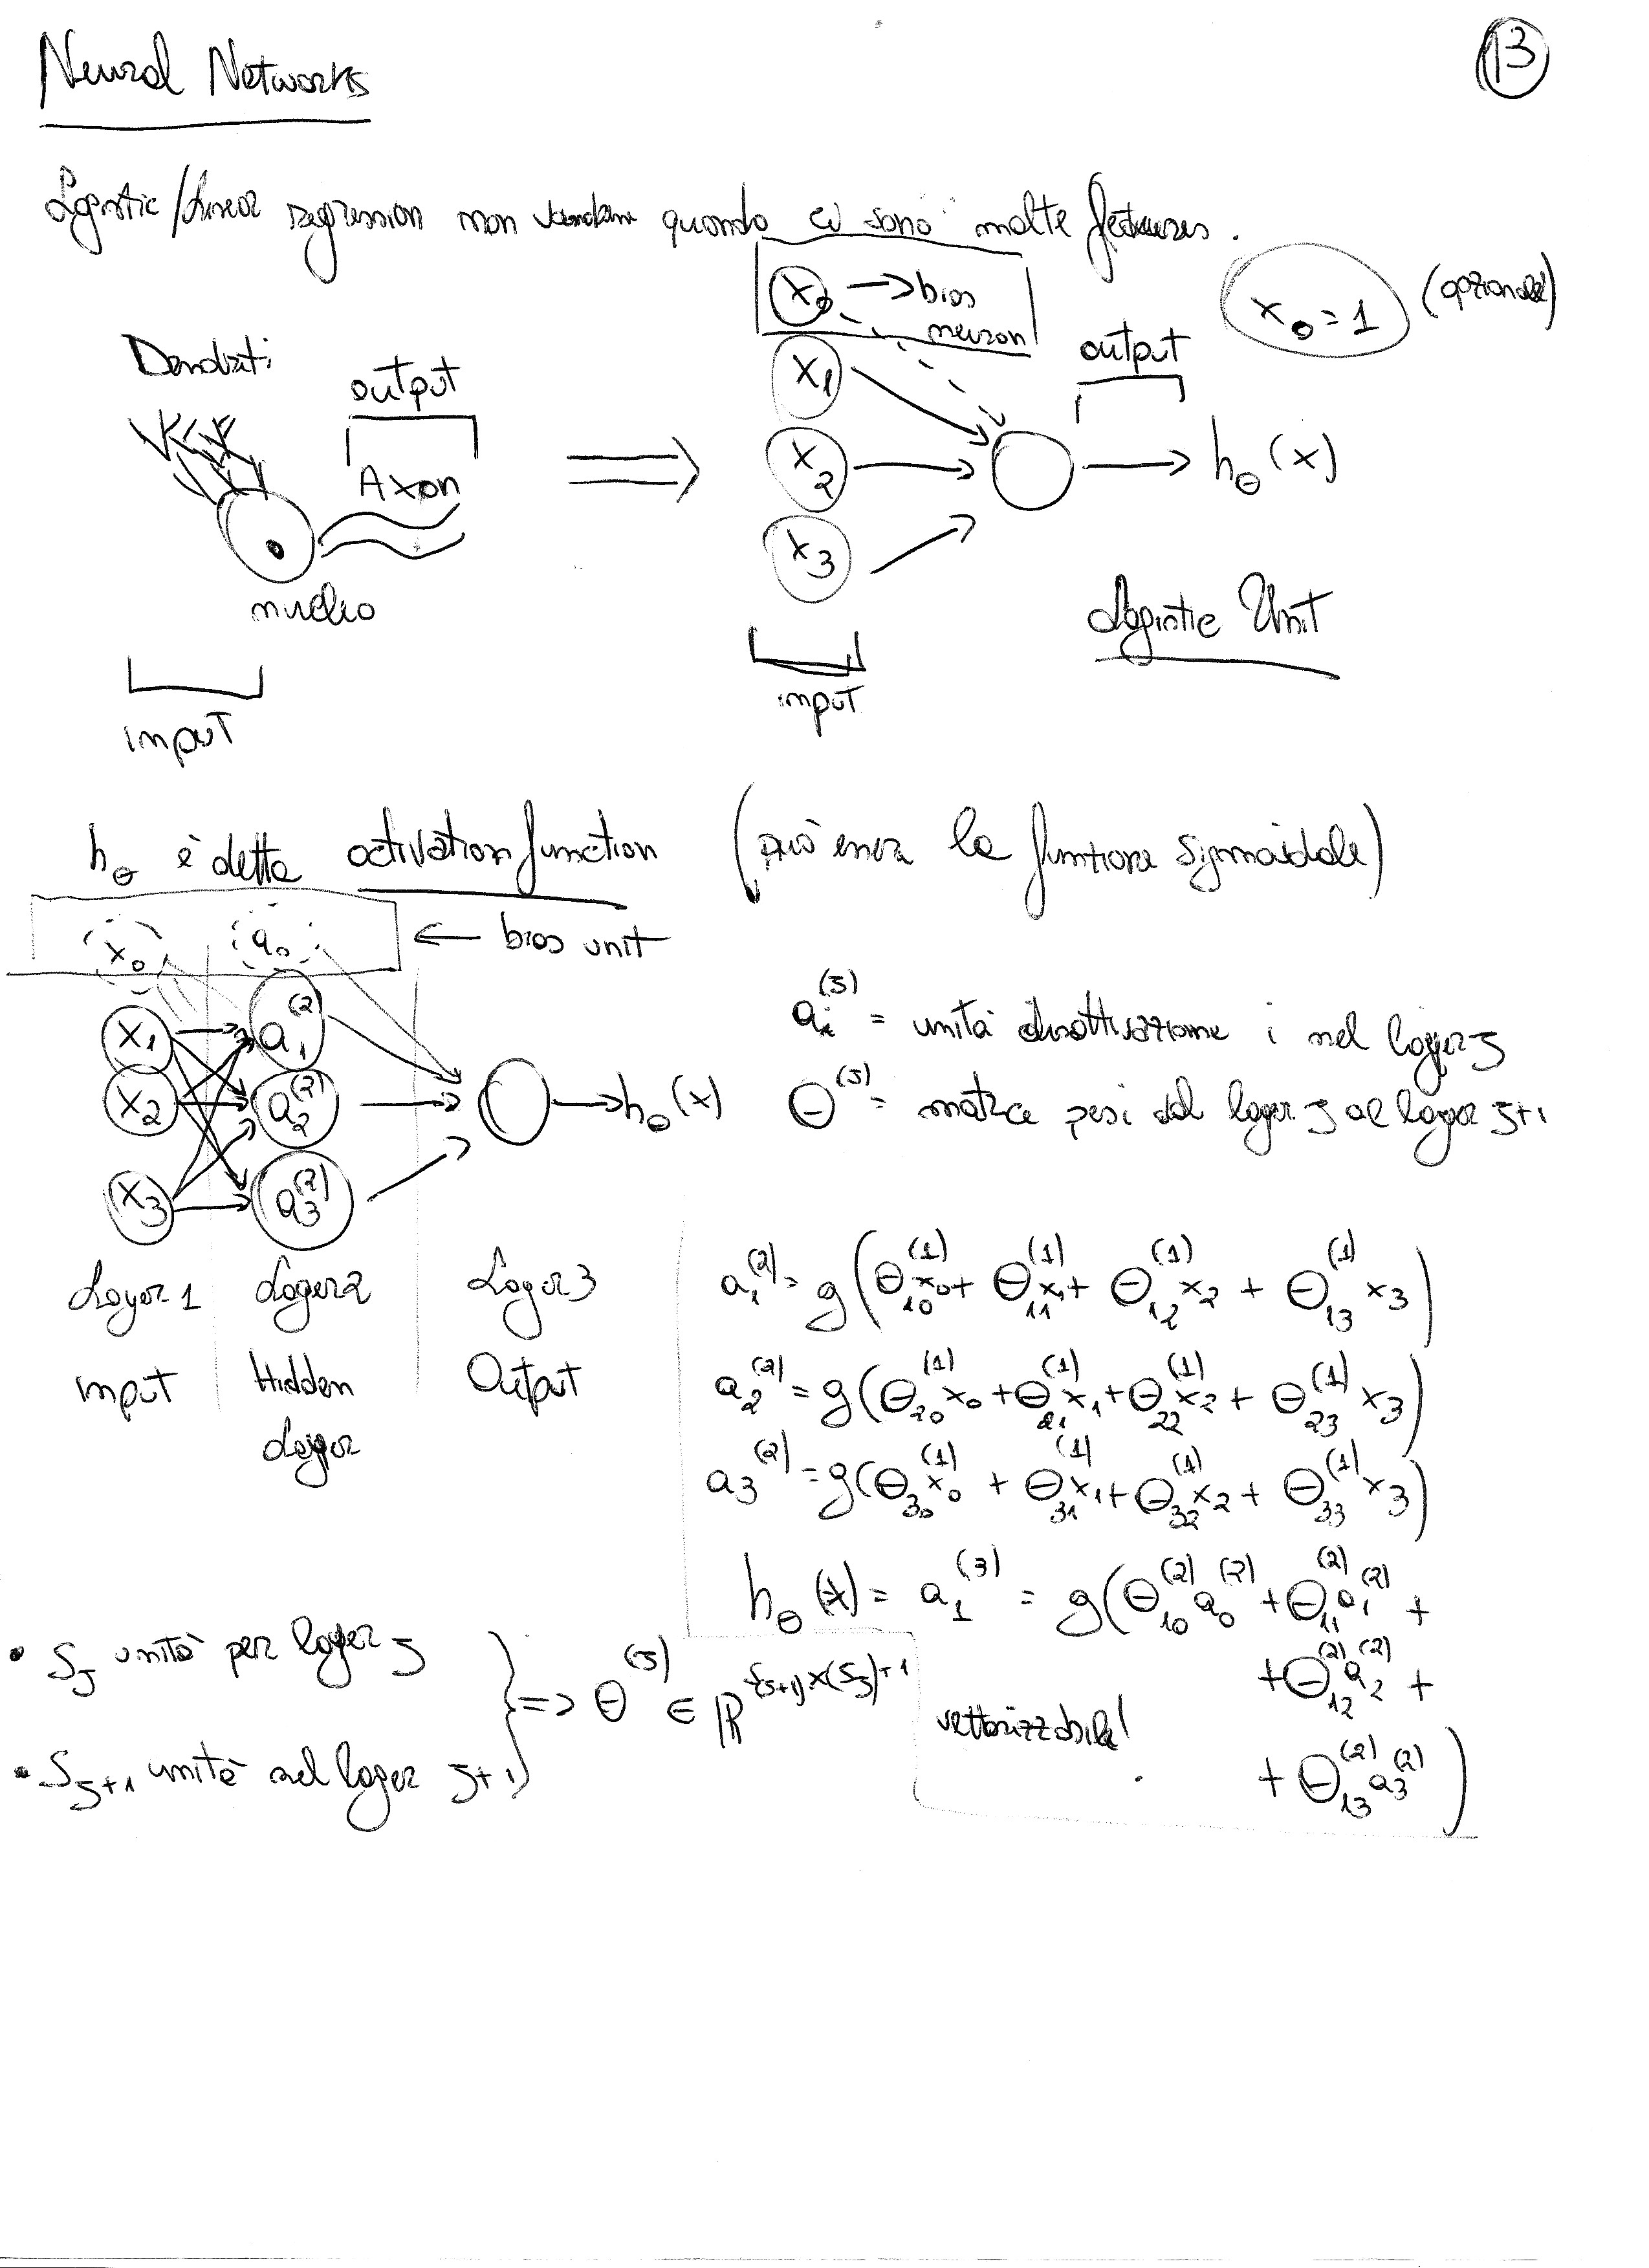 Neural Networks
13
Logistic/Linear regression non vanno quando ci sono molte features.
x₀ → bias neuron
x₀ = 1 (opzionale)
Dendriti
output
Axon
nucleo
input
x₁
x₂
x₃
input
output
h_θ(x)
Logistic Unit
h_θ è detta activation function (può essere la funzione sigmoidale)
x₀ a₀ ← bias unit
x₁ a₁⁽²⁾
x₂ a₂⁽²⁾ → h_θ(x)
x₃ a₃⁽²⁾
Layer 1 Layer 2 Layer 3
input Hidden Layer Output
aᵢ⁽ʲ⁾ = unità di attivazione i nel layer j
Θ⁽ʲ⁾ = matrice pesi dal layer j al layer j+1
a₁⁽²⁾ = g(Θ₁₀⁽¹⁾x₀ + Θ₁₁⁽¹⁾x₁ + Θ₁₂⁽¹⁾x₂ + Θ₁₃⁽¹⁾x₃)
a₂⁽²⁾ = g(Θ₂₀⁽¹⁾x₀ + Θ₂₁⁽¹⁾x₁ + Θ₂₂⁽¹⁾x₂ + Θ₂₃⁽¹⁾x₃)
a₃⁽²⁾ = g(Θ₃₀⁽¹⁾x₀ + Θ₃₁⁽¹⁾x₁ + Θ₃₂⁽¹⁾x₂ + Θ₃₃⁽¹⁾x₃)
h_θ(x) = a₁⁽³⁾ = g(Θ₁₀⁽²⁾a₀⁽²⁾ + Θ₁₁⁽²⁾a₁⁽²⁾ +
+ Θ₁₂⁽²⁾a₂⁽²⁾ +
+ Θ₁₃⁽²⁾a₃⁽²⁾)
vettorizzabile!
• Sⱼ unità per layer j
• Sⱼ₊₁ unità nel layer j+1
} => Θ⁽ʲ⁾ ∈ ℝ^(S(j+1)×(Sj)+1)